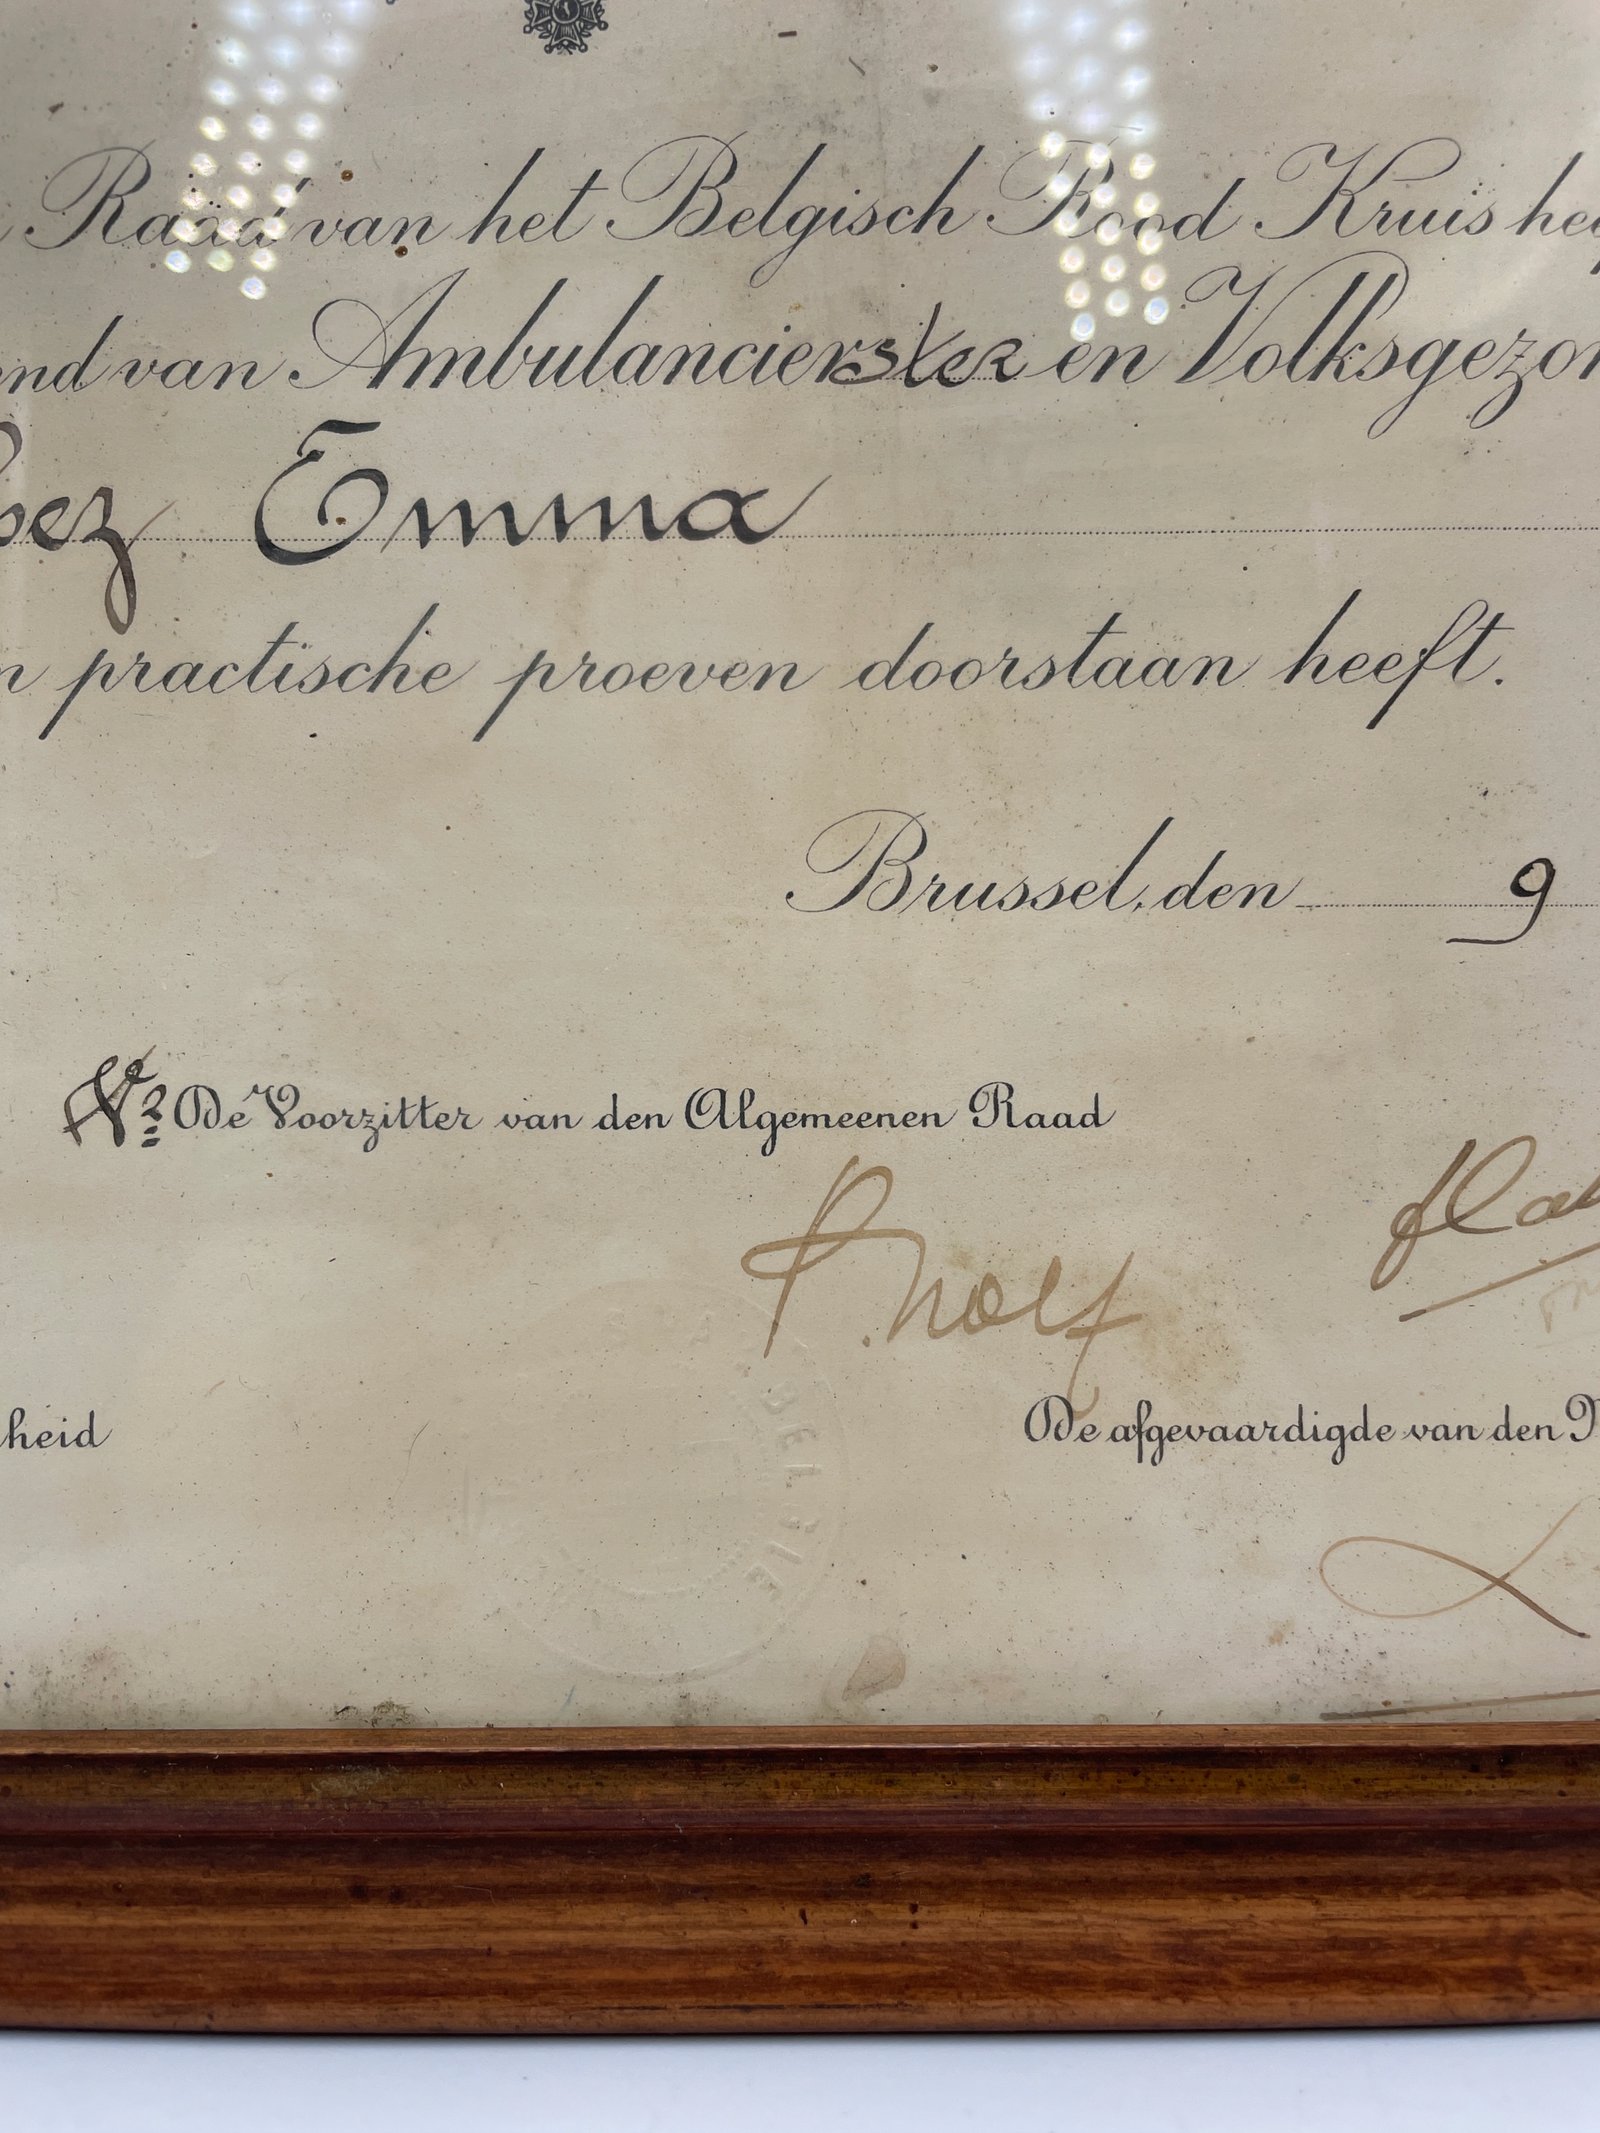 Raad van het Belgisch Rood Kruis
van Ambulancierster en
Emma
practische proeven doorstaan heeft.
Brussel, den 9
De Voorzitter van den Algemeenen Raad
P. Nolf
heid
De afgevaardigde van den
BELGIE